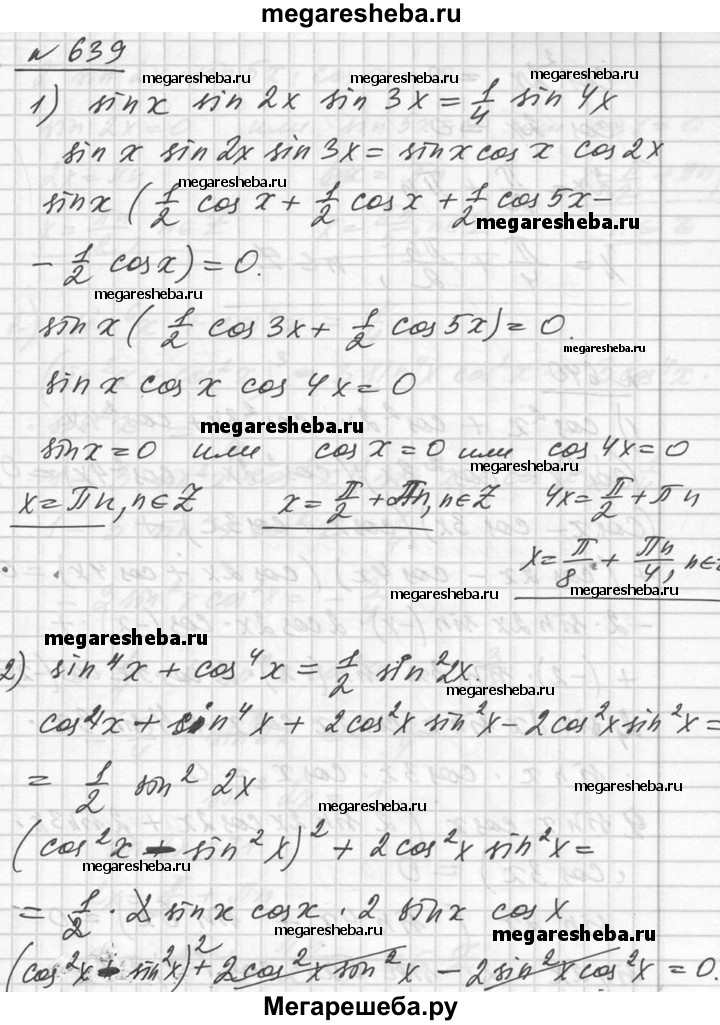 megaresheba.ru
№ 639
megaresheba.ru megaresheba.ru
1) sin x sin 2x sin 3x = 1/4 sin 4x
sin x sin 2x sin 3x = sin x cos x cos 2x
megaresheba.ru
sin x (1/2 cos x + 1/2 cos x + 1/2 cos 5x -
megaresheba.ru
- 1/2 cos x) = 0.
megaresheba.ru
sin x (1/2 cos 3x + 1/2 cos 5x) = 0.
megaresheba.ru
sin x cos x cos 4x = 0
megaresheba.ru
sin x = 0 или cos x = 0 или cos 4x = 0
megaresheba.ru
x = πn, n∈Z x = π/2 + πn, n∈Z 4x = π/2 + πn
x = π/8 + πn/4, n∈Z
megaresheba.ru megaresheba.ru
megaresheba.ru
2) sin⁴x + cos⁴x = 1/2 sin²2x.
megaresheba.ru
cos⁴x + sin⁴x + 2cos²x sin²x - 2cos²x sin²x =
= 1/2 sin² 2x
megaresheba.ru
(cos²x - sin²x)² + 2cos²x sin²x =
megaresheba.ru
= 1/2 · 2 sin x cos x · 2 sin x cos x
megaresheba.ru megaresheba.ru
(cos²x - sin²x)² + 2cos²x sin²x - 2sin²x cos²x = 0.
Мегарешеба.ру